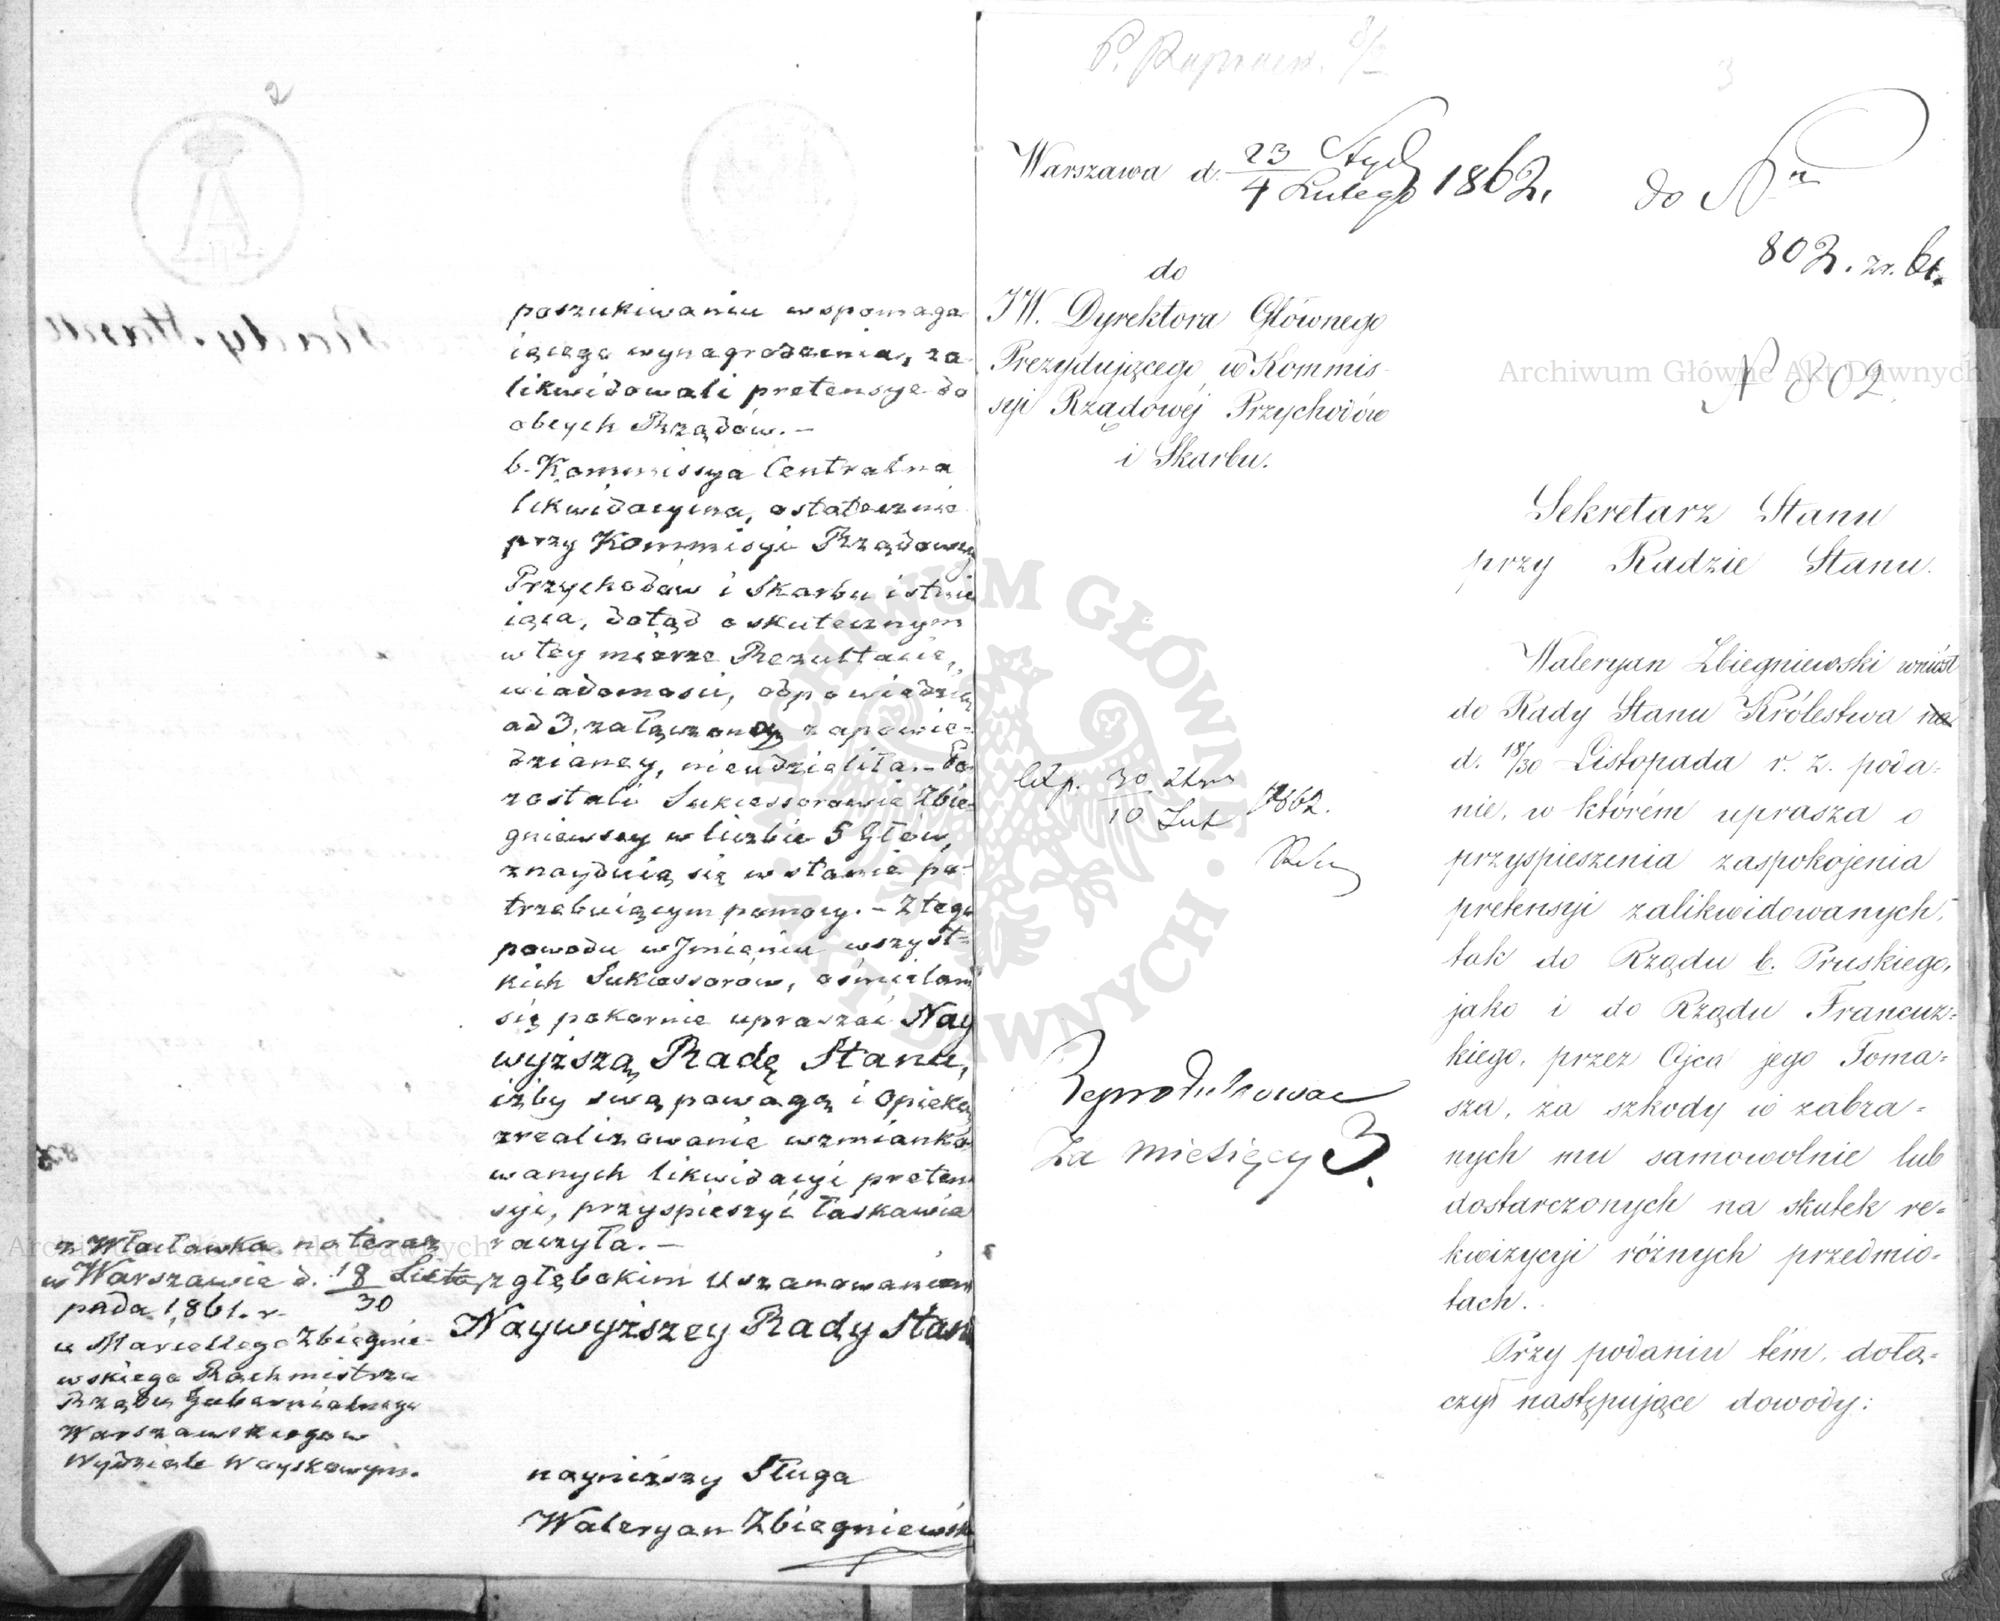 2
poszukiwaniu wspomaga
iącego wynagrodzenia, za
likwidowali pretensye do
obcych Rządów. –
b. Kommissya Centralna
likwidacyina, ostatecznie
przy Kommisyi Rządowey
Przychodów i Skarbu istnie
iąca, dotąd o skutecznym
w tey mierze Rezultacie,
wiadomości, odpowiedzią
ad 3. załączoną zapowie-
dzianey, nieudzieliła. – Po
zostali Sukcessorowie Zbie
gniewscy w liczbie 5 Głów,
znayduią się w stanie po-
trzebuiącym pomocy. – Z tego
powodu w Jmieniu wszyst=
kich Sukcessorów, ośmielam
się pokornie upraszać Nay
wyższą Radę Stanu,
iżby swą powagą i opieką
zrealizowanie wzmianko
wanych likwidacyi preten
syi, przyspieszyć łaskawie
raczyła. –
z głębokim uszanowaniem
Naywyższey Rady Stanu
z Włocławka na teraz
w Warszawie d. 18/30 Listo
pada 1861. r.
u Marcellego Zbiegnie-
wskiego Rachmistrza
Rządu Gubernialnego
Warszawskiego w
Wydziale Woyskowym.
nayniższy Sługa
Waleryan Zbiegniewski
3
Warszawa d. 23 Stycz/4 Lutego 1862.
do Nru
802. zr. 61.
N 802
do
JW. Dyrektora Głównego
Prezydującego w Kommis-
syi Rządowéj Przychodów
i Skarbu.
Sekretarz Stanu
przy Radzie Stanu.
Waleryan Zbiegniewski wniósł
do Rady Stanu Królestwa na
d. 18/30 Listopada r. z. poda-
nie, w którém uprasza o
przyspieszenia zaspokojenia
pretensyi zalikwidowanych,
tak do Rządu b. Pruskiego,
jako i do Rządu Francuz-
kiego, przez Ojca jego Toma-
sza, za szkody w zabra-
nych mu samowolnie lub
dostarczonych na skutek re-
kwizycyi różnych przedmio-
tach.
Przy podaniu tém, dołą-
czył następujące dowody:
1862.
Reprodukować
za miesięcy 3.
Archiwum Główne Akt Dawnych
Archiwum Główne Akt Dawnych
ARCHIWUM GŁÓWNE · AKT DAWNYCH ·